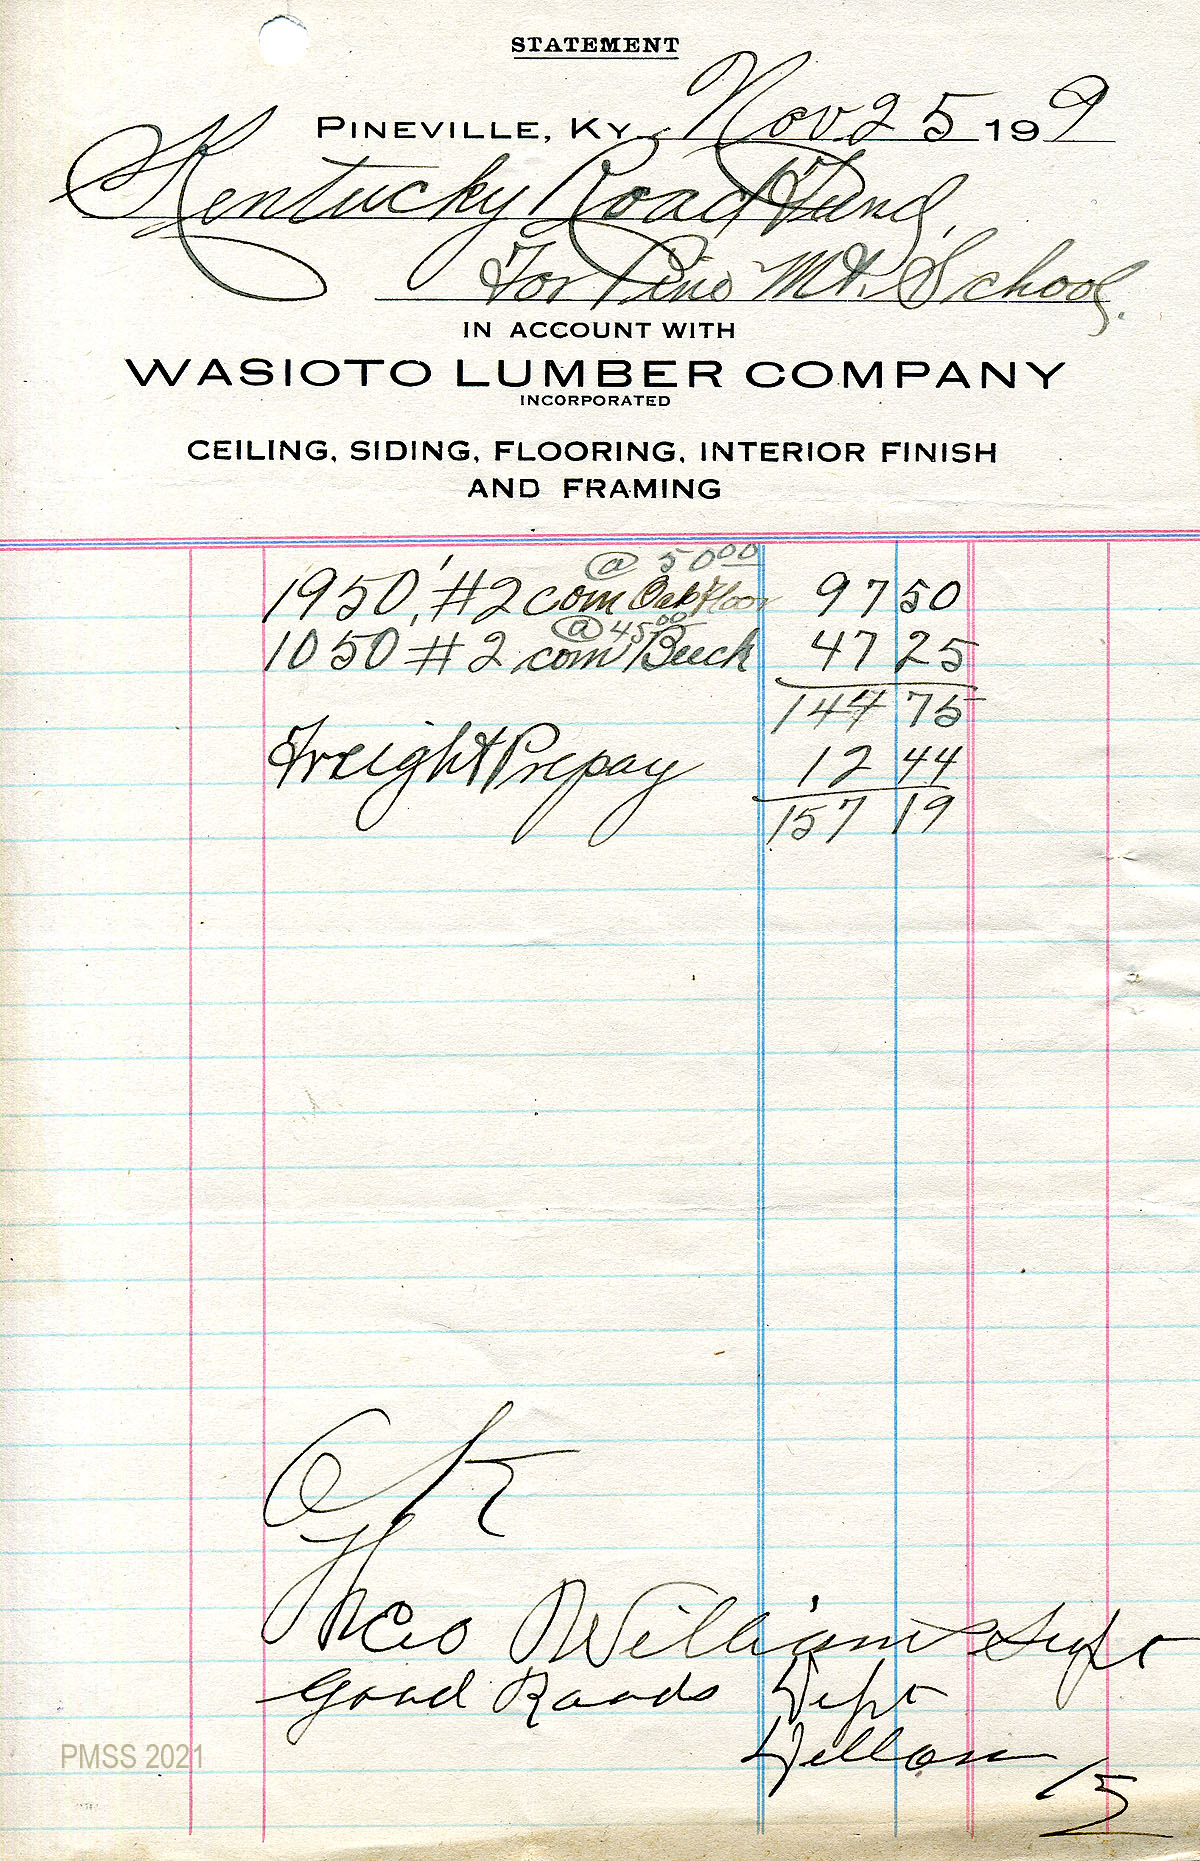 STATEMENT
PINEVILLE, KY. Nov 25 199
Kentucky Road Fund,
For Pine Mt. School.
IN ACCOUNT WITH
WASIOTO LUMBER COMPANY
INCORPORATED
CEILING, SIDING, FLOORING, INTERIOR FINISH
AND FRAMING
@ 50 00
1950' #2 com Oak Floor 97 50
@ 45 00
1050 #2 com Beech 47 25
144 75
Freight Prepay 12 44
157 19
OK
Theo Williams Supt
Good Roads Dept
15
PMSS 2021